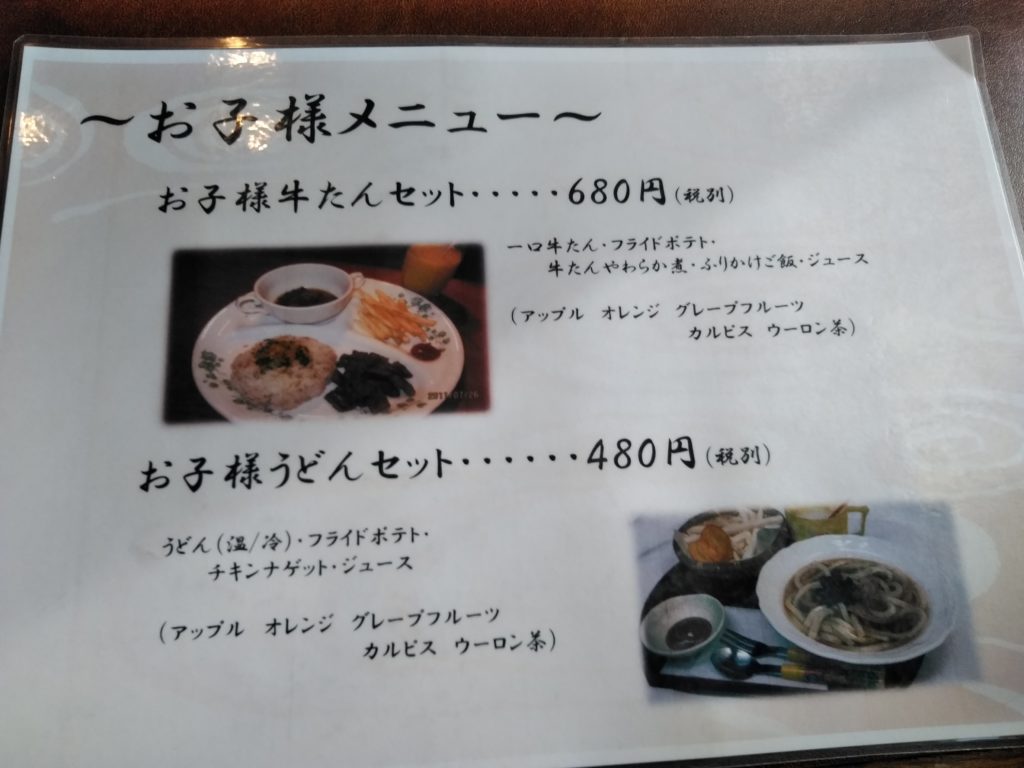 ～お子様メニュー～
お子様牛たんセット・・・・・680円(税別)
一口牛たん・フライドポテト・
牛たんやわらか煮・ふりかけご飯・ジュース
(アップル オレンジ グレープフルーツ
カルピス ウーロン茶)
2011/07/26
お子様うどんセット・・・・・・480円(税別)
うどん(温/冷)・フライドポテト・
チキンナゲット・ジュース
(アップル オレンジ グレープフルーツ
カルピス ウーロン茶)